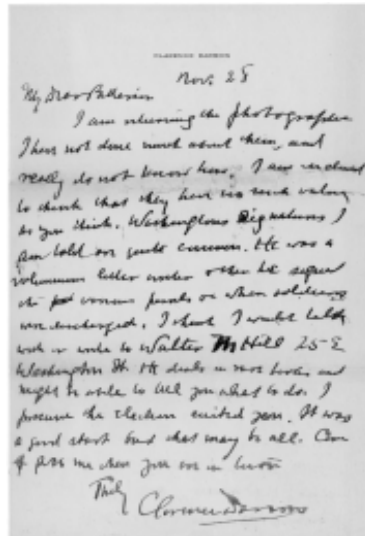 CLARENCE DARROW
Nov. 28
My Dear
I am returning the photographs
I have not done much about them, and
really do not know how. I am inclined
to think that they have no such value
as you think. Washingtons signatures I
am told are quite common. He was a
voluminous letter writer other he signed
the various or when soldiers
were discharged. I think I would talk
with or write to Walter M Hill 25-E
Washington St. He deals in rare books and
might be able to tell you what to do. I
presume the election suited you. It was
a good start but that may be all. Come
& see me when you are in town
Truly
Clarence Darrow